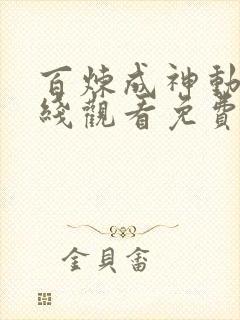 百炼成神動
綫觀看免費
金貝畲